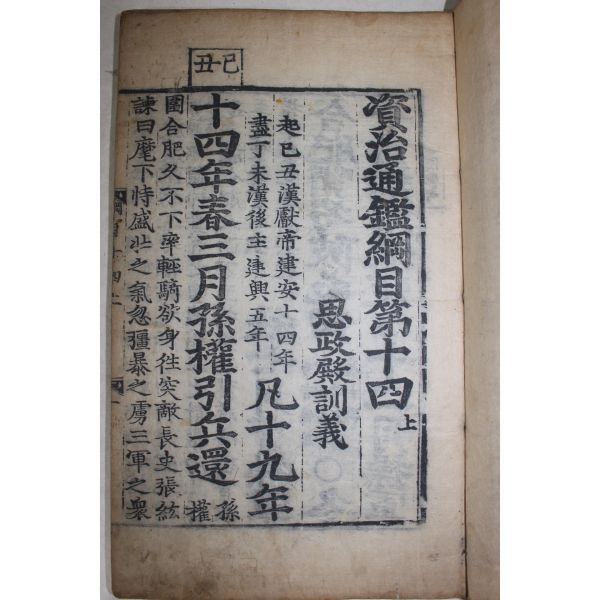 資治通鑑綱目第十四上
思政殿訓義
起己丑漢獻帝建安十四年
盡丁未漢後主建興五年
凡十九年
己丑
十四年春三月孫權引兵還
孫權
圍合肥久不下率輕騎欲身徃突敵長史張紘
諫曰麾下恃盛壯之氣忽彊暴之虜三軍之衆